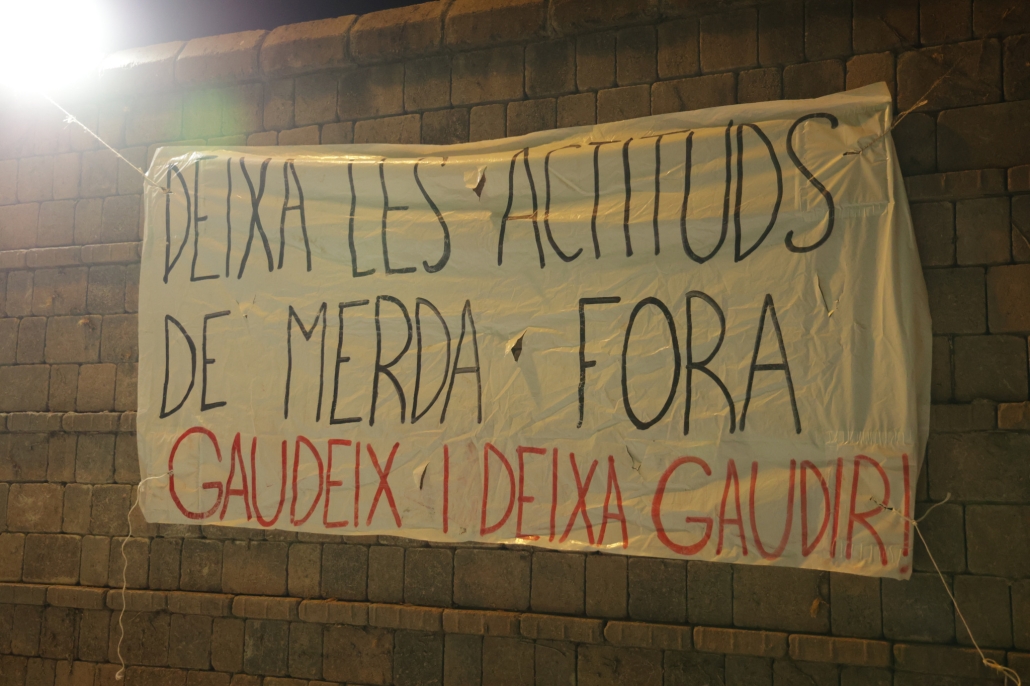 DEIXA LES ACTITUDS
DE MERDA FORA
GAUDEIX I DEIXA GAUDIR!